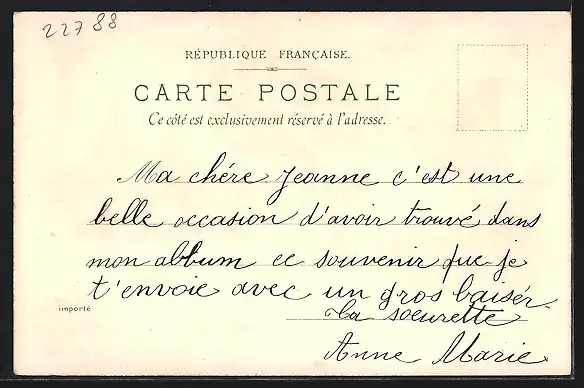 22788
RÉPUBLIQUE FRANÇAISE.
CARTE POSTALE
Ce côté est exclusivement réservé à l'adresse.
Ma chére Jeanne c'est une
belle occasion d'avoir trouvé dans
mon abbum ce souvenir que je
t'envoie avec un gros baisér
importé
ta soeurette
Anne Marie